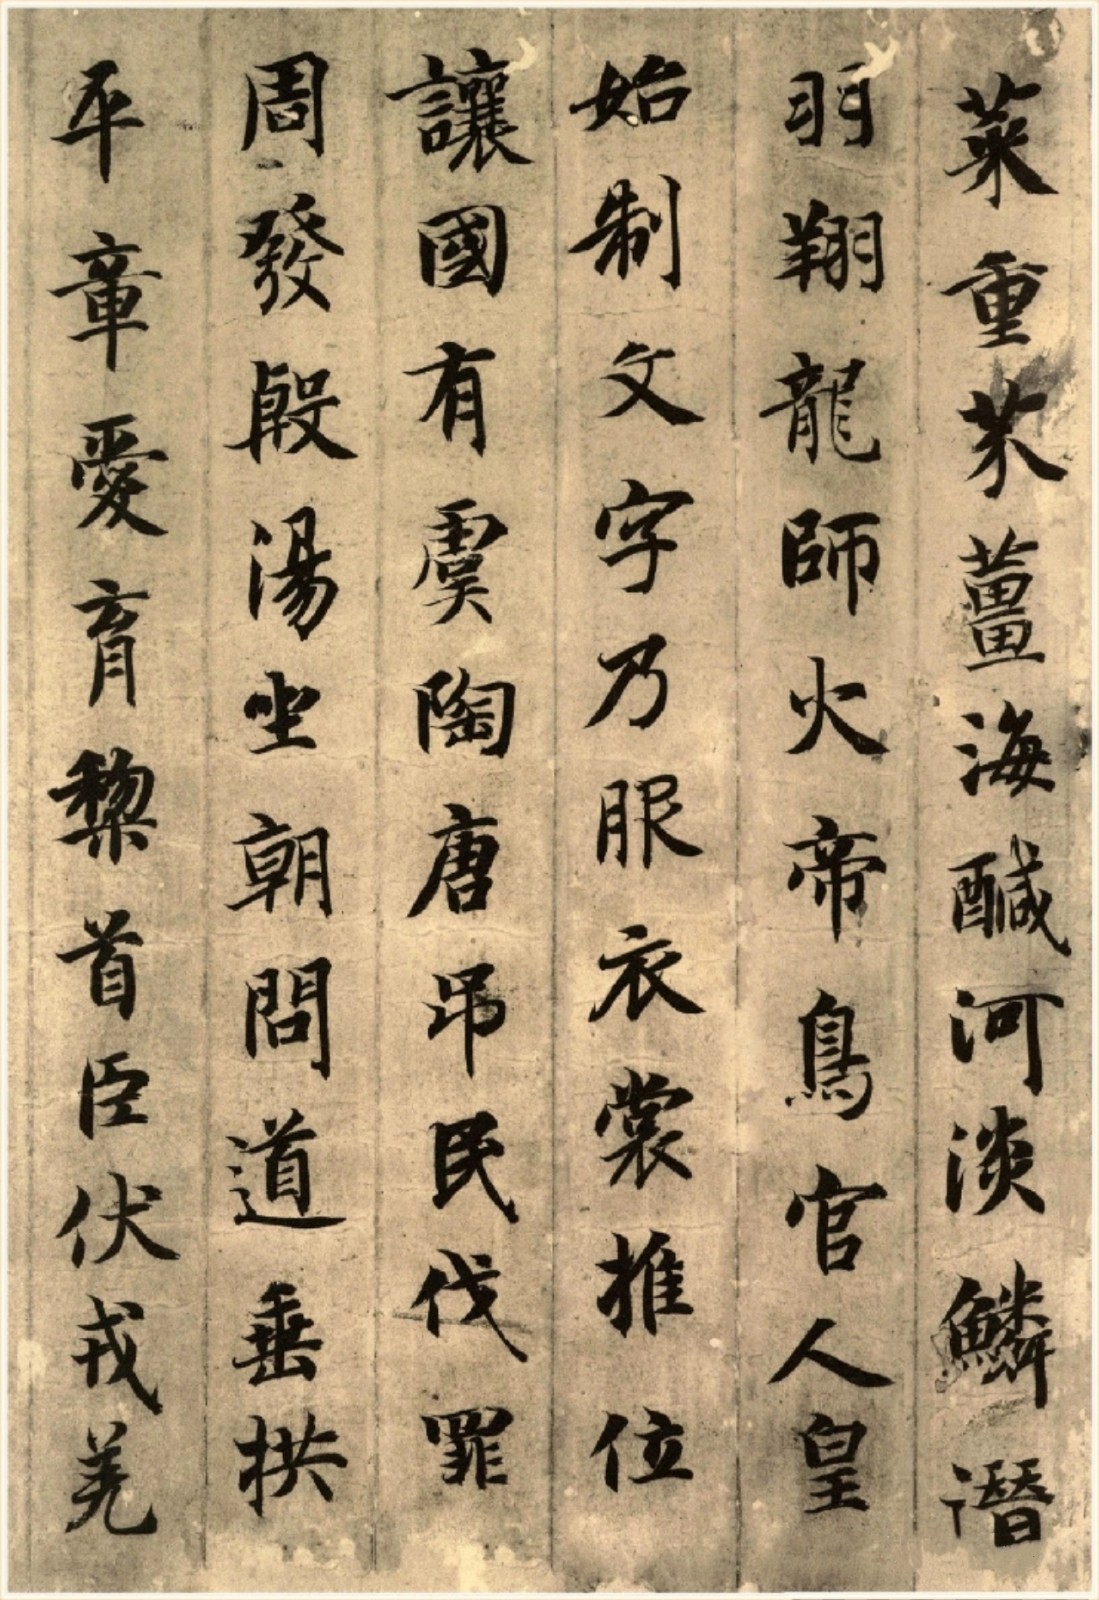 菜重芥薑海醎河淡鱗潛
羽翔龍師火帝鳥官人皇
始制文字乃服衣裳推位
讓國有虞陶唐弔民伐罪
周發殷湯坐朝問道垂拱
平章愛育黎首臣伏戎羌